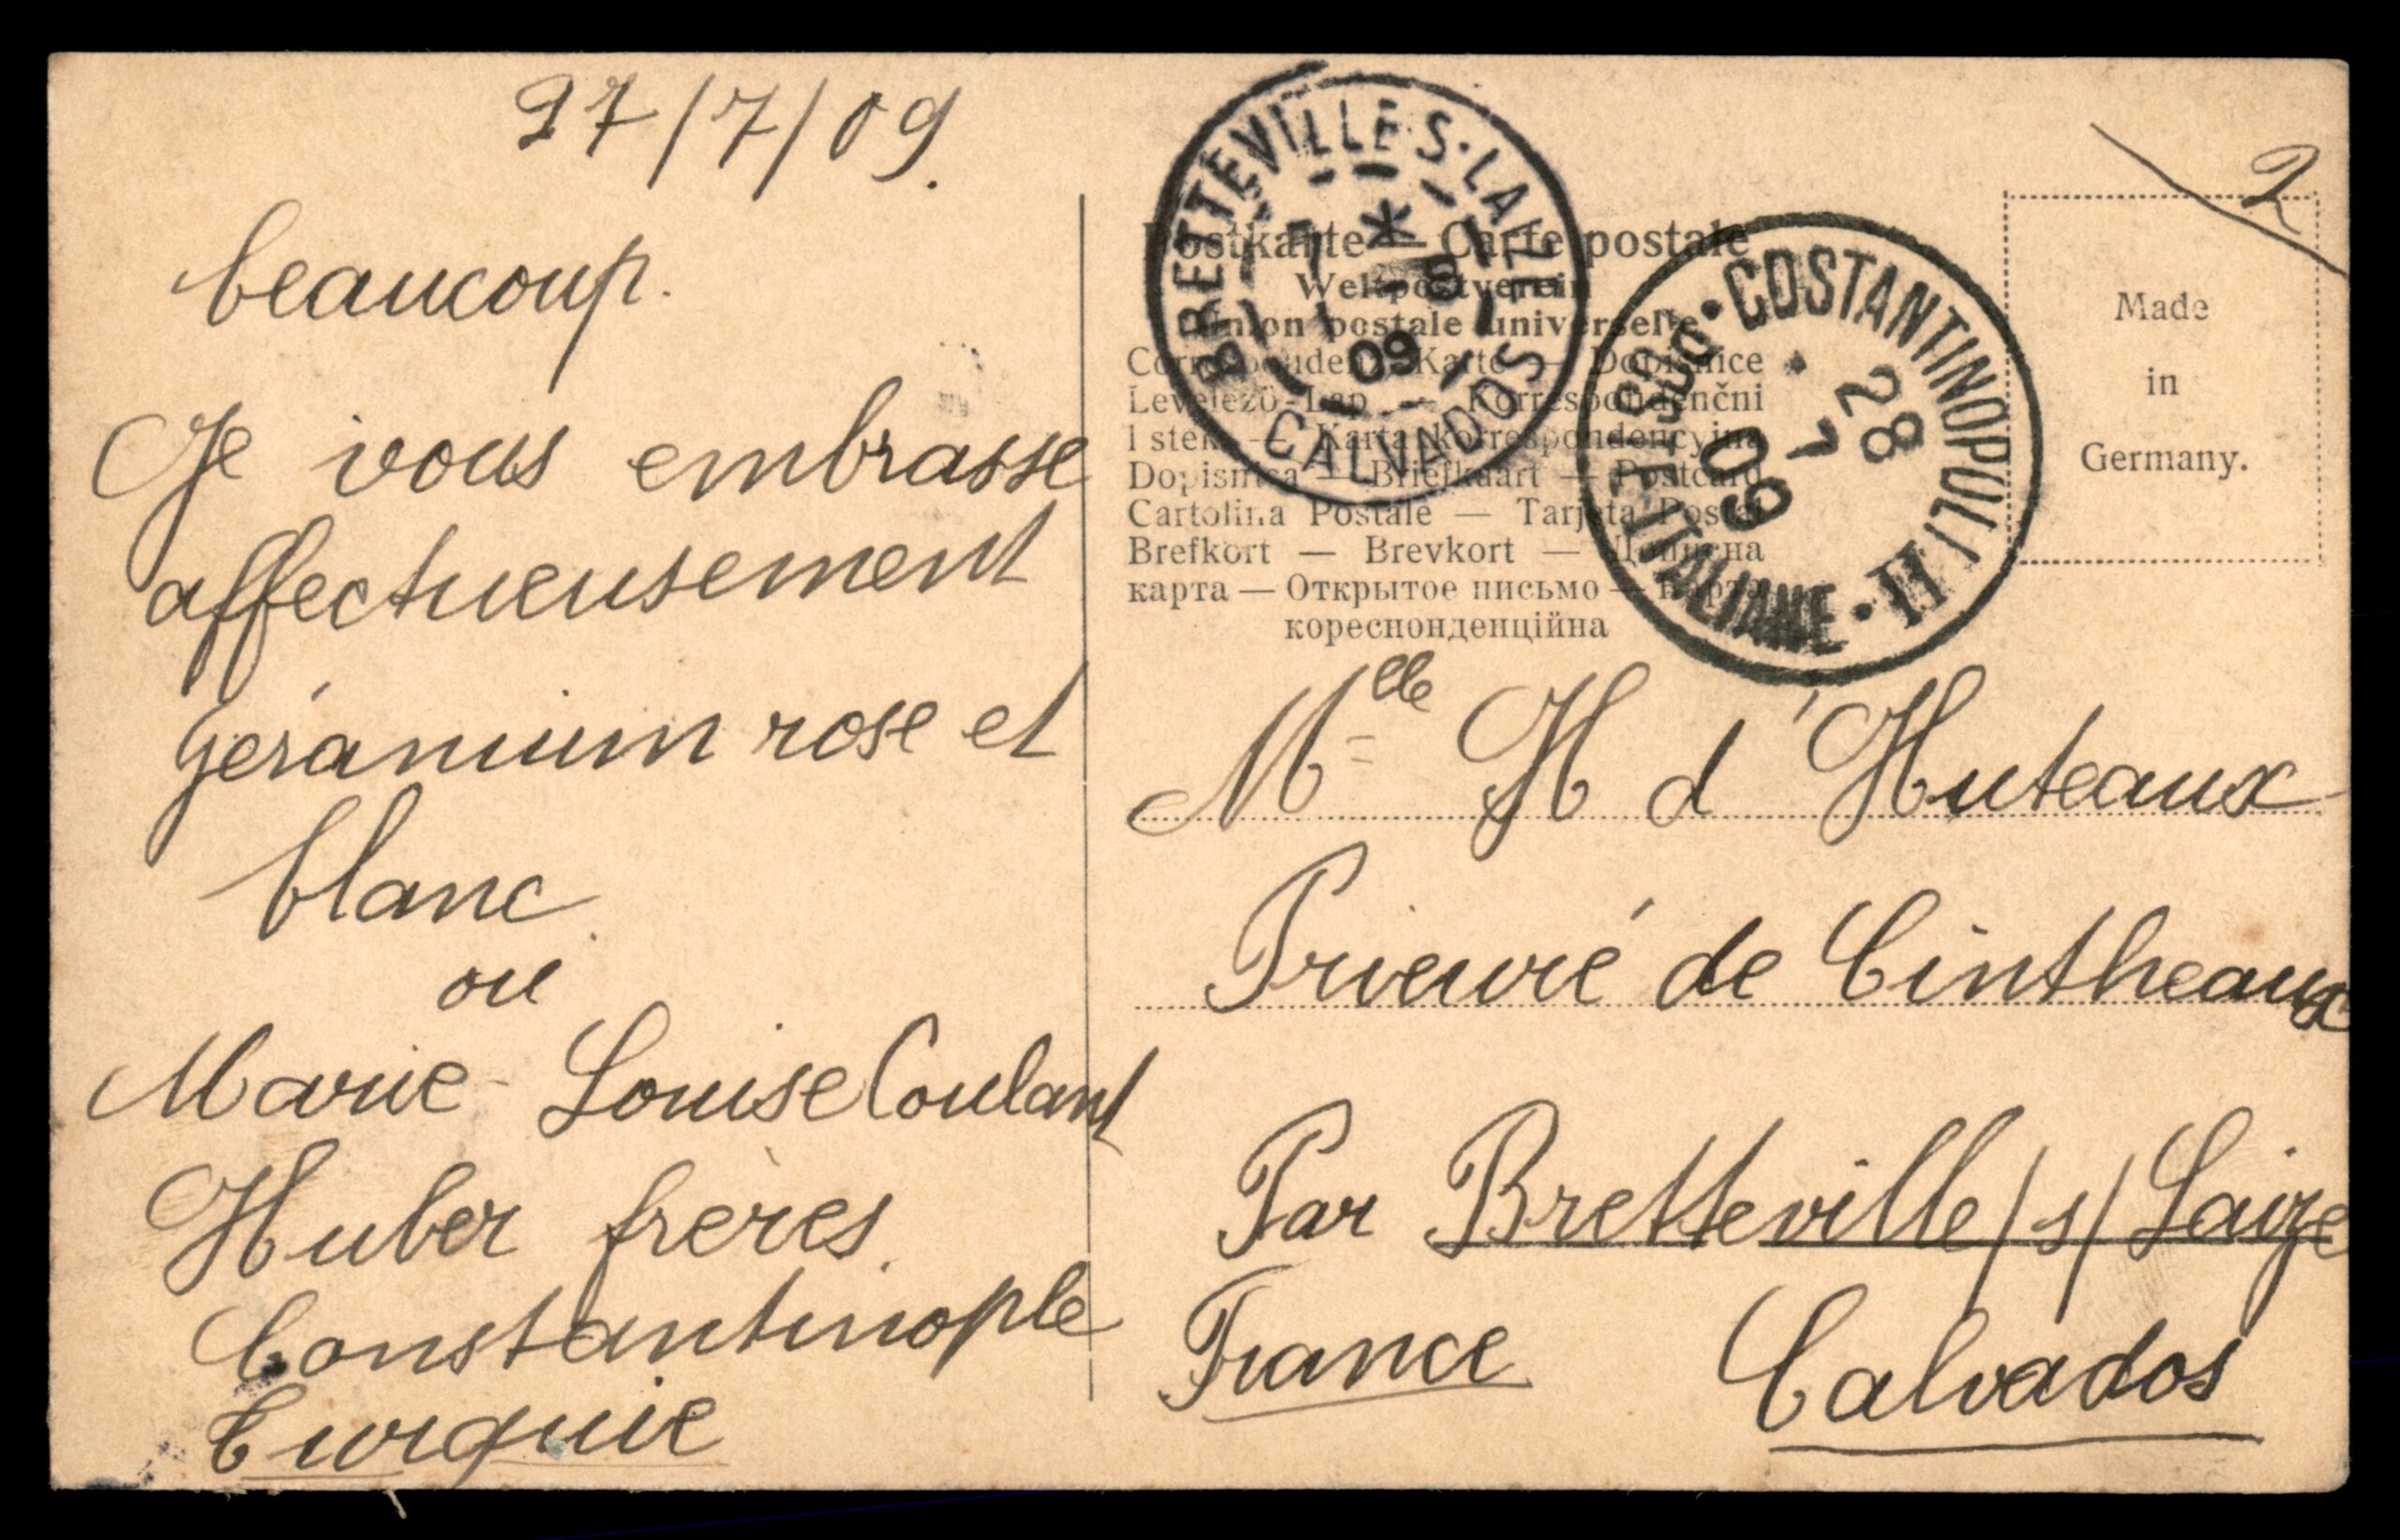 27/7/09.
beaucoup.
Je vous embrasse
affectueusement
géranium rose et
blanc.
ou
Marie-Louise Coulant
Huber frères.
Constantinople
Turquie
BRETTEVILLE-S-LAIZE
*
8
09
CALVADOS
COSTANTINOPOLI
28
7
09
ITALIANE
2
Postkarte — Carte postale
Weltpostverein
Union postale universelle
Correspondenz-Karte — Dopisnice
Levelező-Lap — Korrespondenční
lístek — Karta korrespondencyjna
Dopisnica — Briefkaart — Postcard
Cartolina Postale — Tarjeta Postal
Brefkort — Brevkort —
карта — Открытое письмо — Карта
кореспонденційна
Made
in
Germany.
Mlle H d'Huteaux
Prieuré de Cintheaux
Par Bretteville/s/Laize
France Calvados